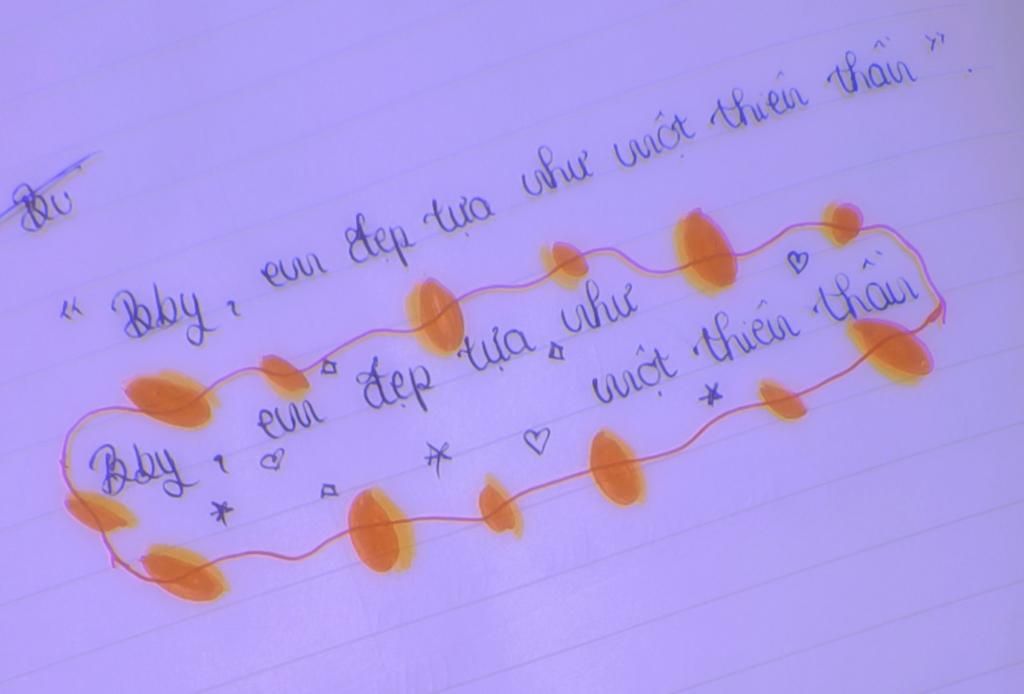 "Bby, em đẹp tựa như một thiên thần".
Bby, em đẹp tựa như một thiên thần